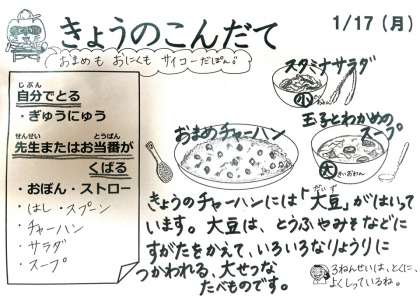 きょうのこんだて
1/17(月)
おまめも おにくも サイコーだぽん♪
自分でとる
じぶん
・ぎゅうにゅう
せんせい とうばん
先生またはお当番が
くばる
・おぼん・ストロー
・はし・スプーン
・チャーハン
・サラダ
・スープ
スタミナサラダ
小
おまめチャーハン
玉子とわかめの
スープ
大
きいおわん
きょうのチャーハンには「大豆」がはいって
だいず
います。大豆は、とうふやみそなどに
すがたをかえて、いろいろなりょうりに
つかわれる、大せつな
たべものです。
3ねんせいは、とくに、
よくしっているね。